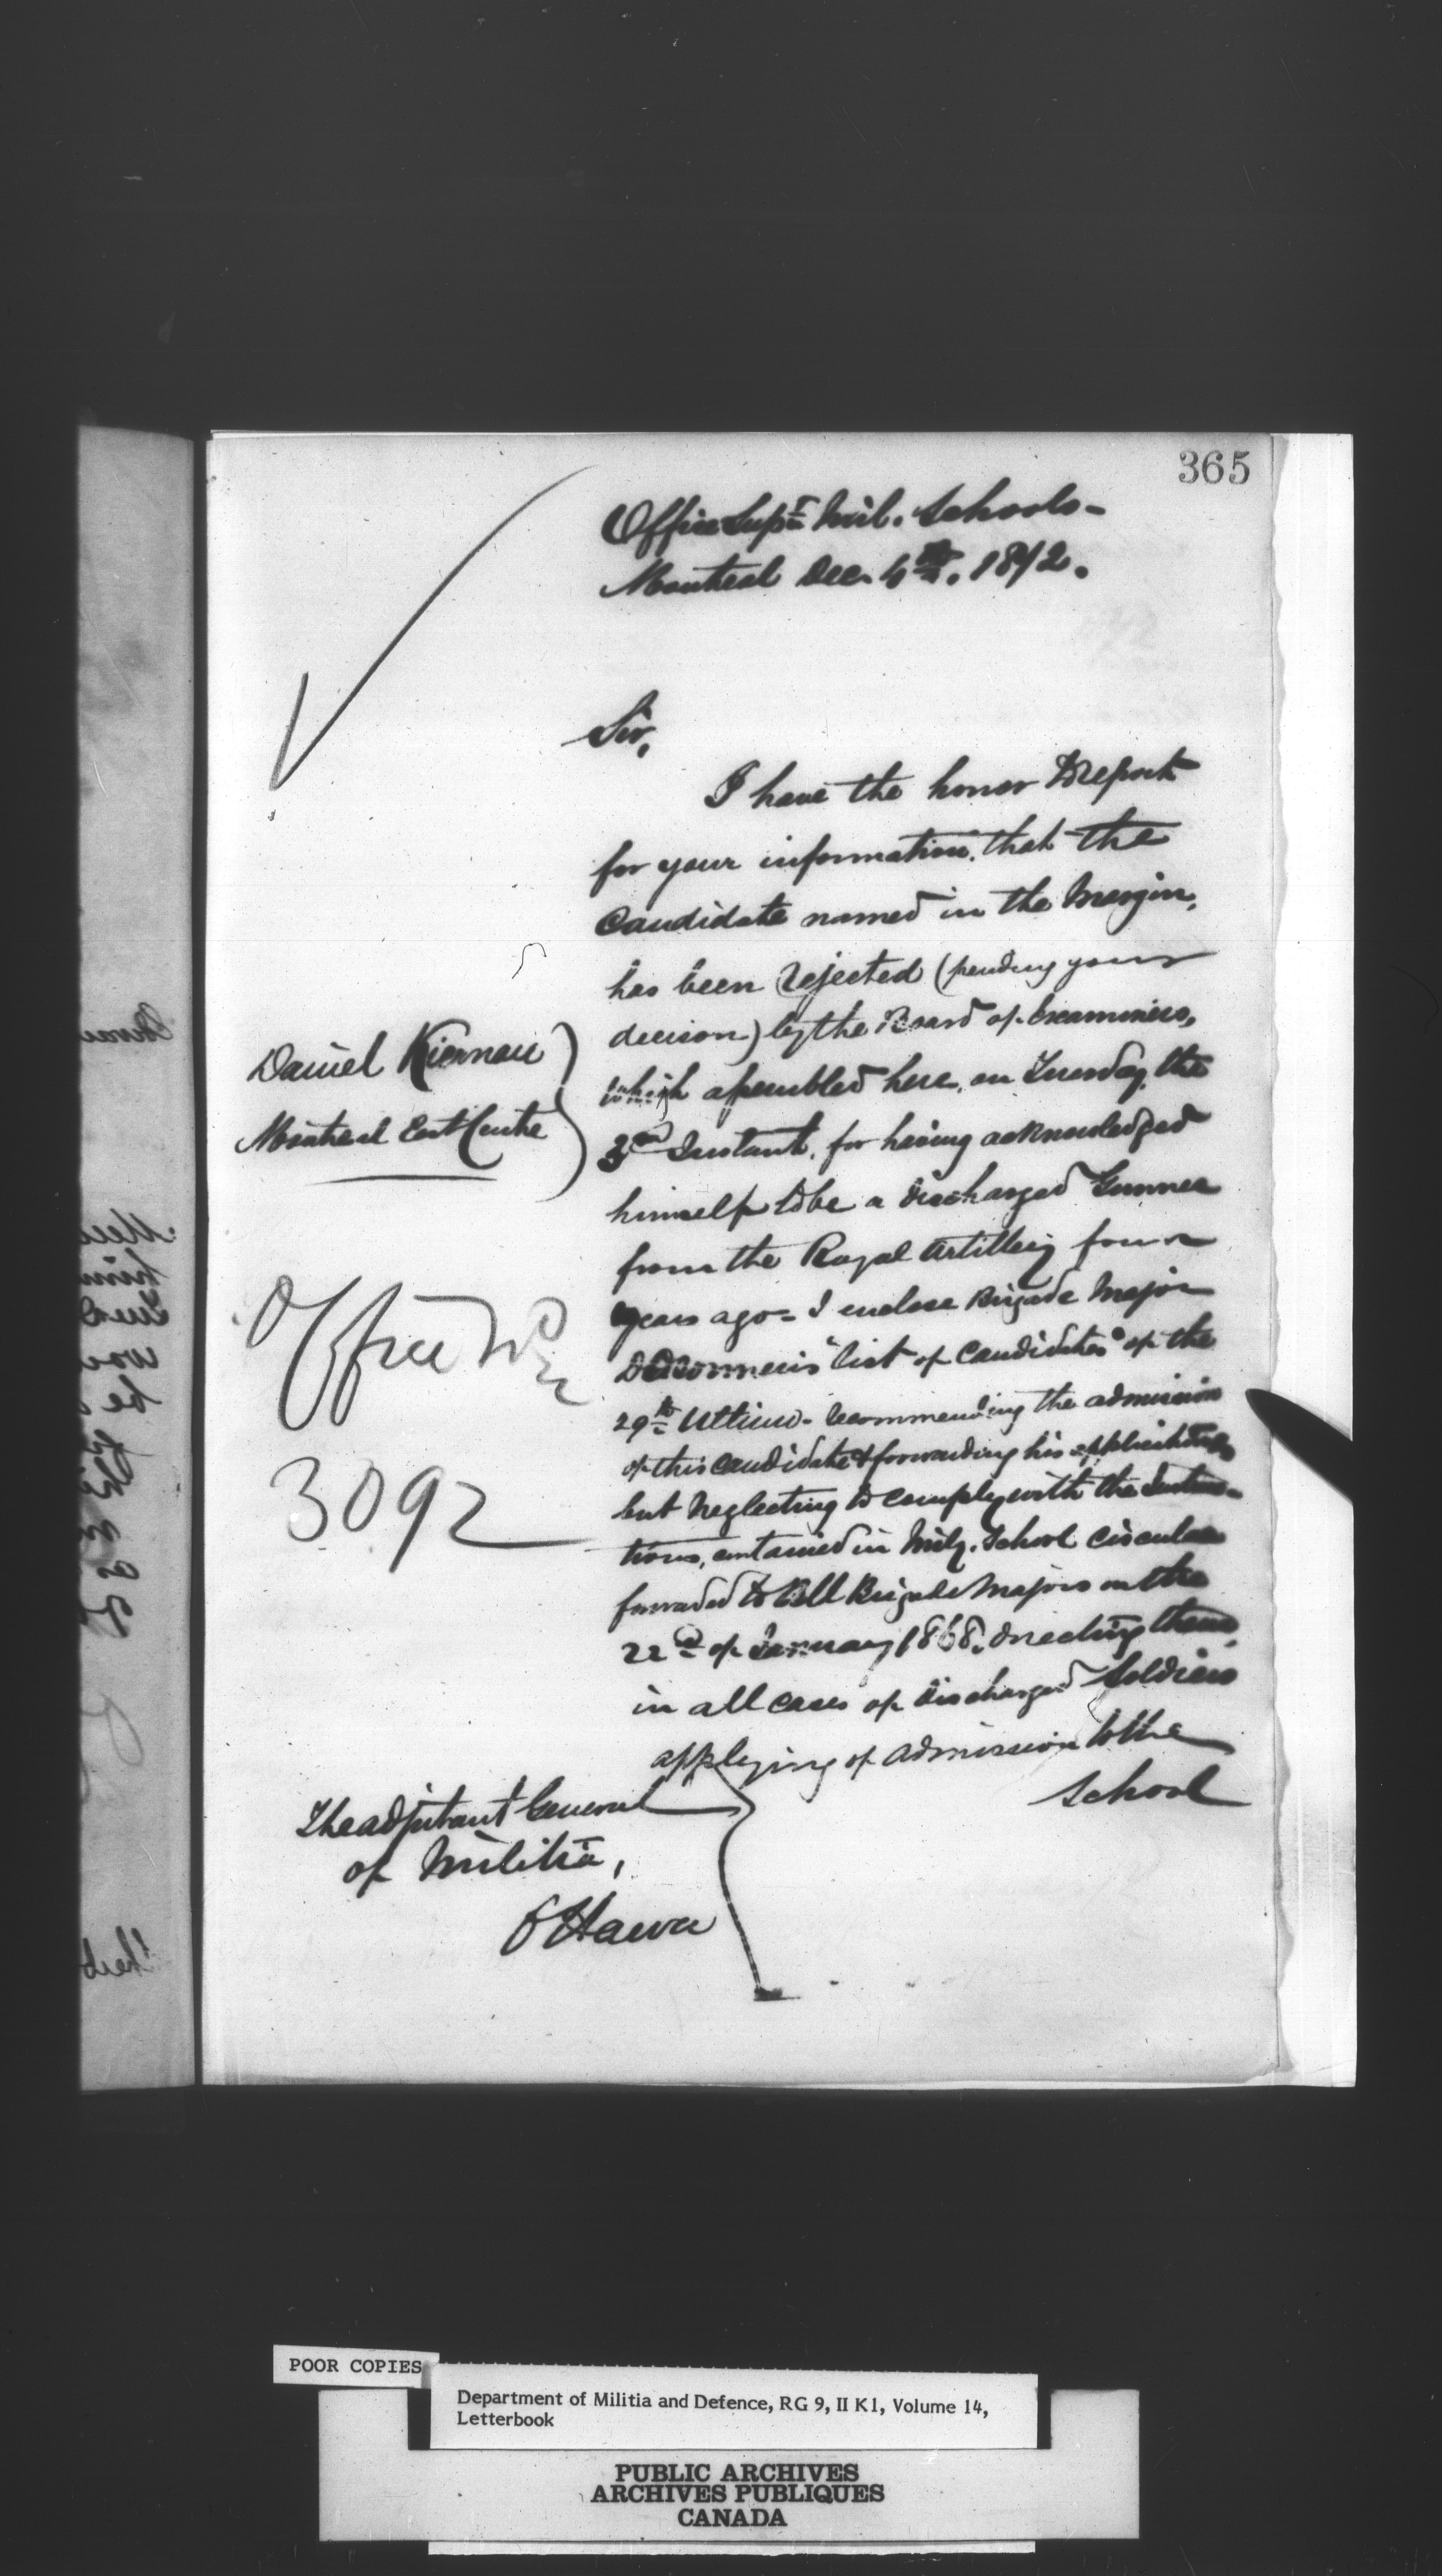 365
Office Supt Mil. Schools-
Montreal Dec. 4th. 1872.
Sir,
I have the honor to report
for your information, that the
Candidate named in the Margin,
has been rejected (pending your
decision) by the Board of Examiners,
Daniel Kiernan
which assembled here, on Tuesday, the
Montreal Centre
3rd Instant, for having acknowledged
himself to be a discharged Gunner
from the Royal Artillery four
years ago - I enclose Brigade Major
"list of Candidates" of the
Office No
29th Ultimo - recommending the admission
of this candidate & forwarding his application
3092
but neglecting to comply with the Instruc-
tions, contained in Mily. School Circular
forwarded to all Brigade Majors on the
22nd of January 1868, directing them,
in all cases of discharged Soldiers
applying of admission to the
School
The Adjutant General
of Militia,
Ottawa
POOR COPIES
Department of Militia and Defence, RG 9, II K1, Volume 14,
Letterbook
PUBLIC ARCHIVES
ARCHIVES PUBLIQUES
CANADA